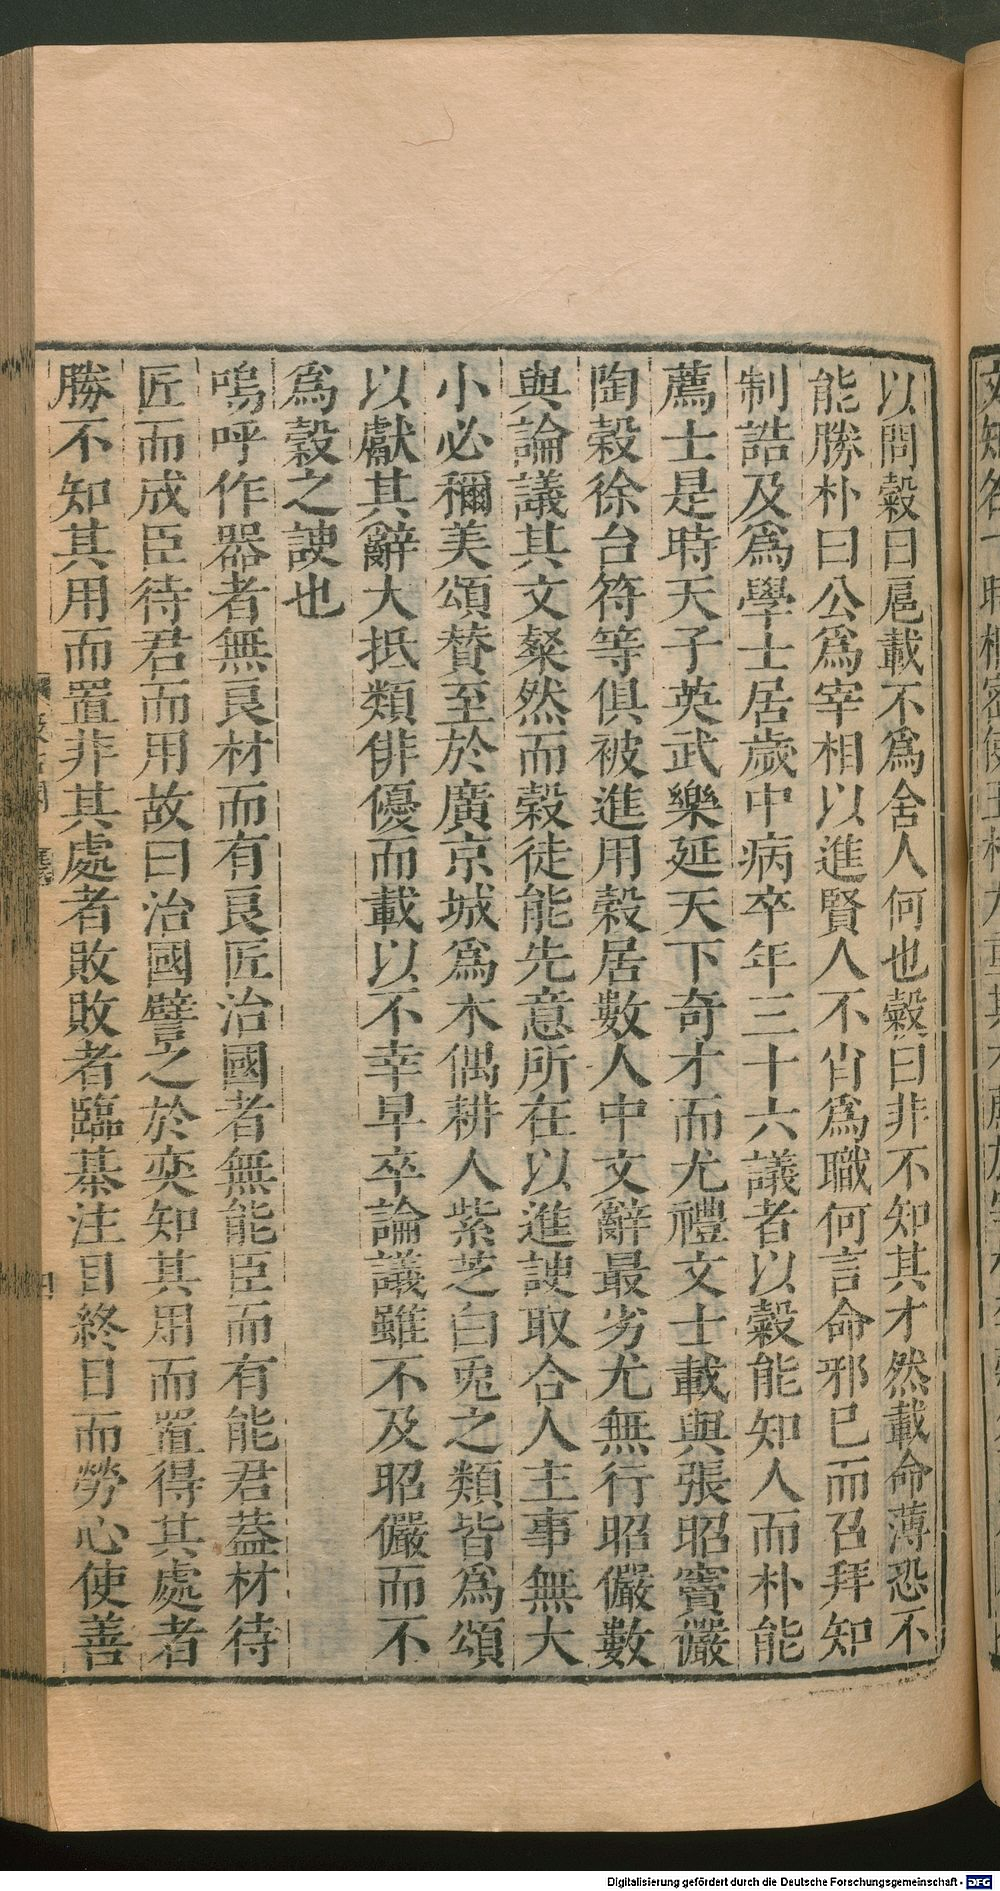 以問穀曰扈載不爲舍人何也穀曰非不知其才然載命薄恐不
能勝朴曰公爲宰相以進賢人不肖爲職何言命邪已而召拜知
制誥及爲學士居歲中病卒年三十六議者以穀能知人而朴能
薦士是時天子英武樂延天下奇才而尤禮文士載與張昭竇儼
陶穀徐台符等俱被進用穀居數人中文辭最劣尤無行昭儼數
與論議其文粲然而穀徒能先意所在以進諛取合人主事無大
小必稱美頌贊至於廣京城爲木偶耕人紫芝白兎之類皆爲頌
以獻其辭大抵類俳優而載以不幸早卒論議雖不及昭儼而不
爲穀之諛也
嗚呼作器者無良材而有良匠治國者無能臣而有能君蓋材待
匠而成臣待君而用故曰治國譬之於奕知其用而置得其處者
勝不知其用而置非其處者敗敗者臨棊注目終日而勞心使善
Digitalisierung gefördert durch die Deutsche Forschungsgemeinschaft - DFG